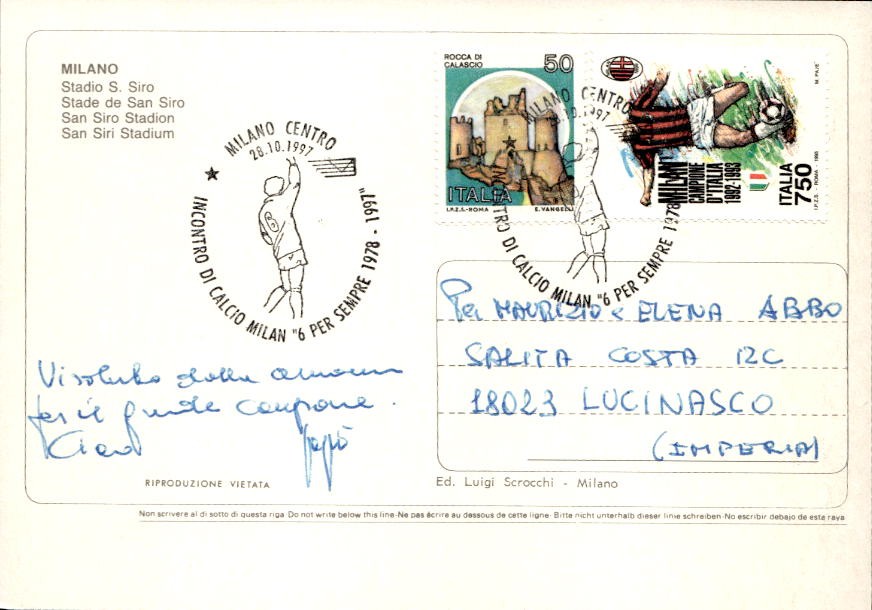 MILANO
Stadio S. Siro
Stade de San Siro
San Siro Stadion
San Siri Stadium
MILANO CENTRO
28.10.1997
INCONTRO DI CALCIO MILAN "6 PER SEMPRE 1978 - 1997"
6
ROCCA DI
CALASCIO
50
ITALIA
I.P.Z.S.-ROMA E. VANGELLI
MILANO CENTRO
28.10.1997
INCONTRO DI CALCIO MILAN "6 PER SEMPRE 1978
MILAN
CAMPIONE
D'ITALIA
1992-1993
ITALIA
750
I.P.Z.S. - ROMA - 1993
Per MAURIZIO e ELENA ABBO
SALITA COSTA 12C
18023 LUCINASCO
(IMPERIA)
dalla
per il grande campione.
Ciao
RIPRODUZIONE VIETATA
Ed. Luigi Scrocchi - Milano
Non scrivere al di sotto di questa riga-Do not write below this line-Ne pas écrire au dessous de cette ligne-Bitte nicht unterhalb dieser linie schreiben-No escribir debajo de esta raya